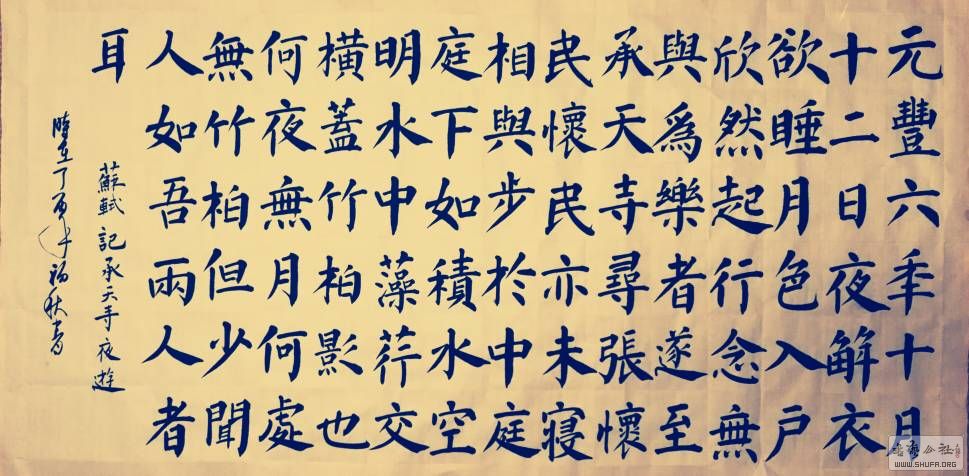 元豐六秊十月
十二日夜解衣
欲睡月色入戶
欣然起行念無
與爲樂者遂至
承天寺尋張懷
民懷民亦未寢
相與步於中庭
庭下如積水空
明水中藻荇交
橫蓋竹柏影也
何夜無月何處
無竹柏但少聞
人如吾兩人者
耳
蘇軾記承天寺夜遊
時在丁酉年初秋書
WWW.SHUFA.ORG